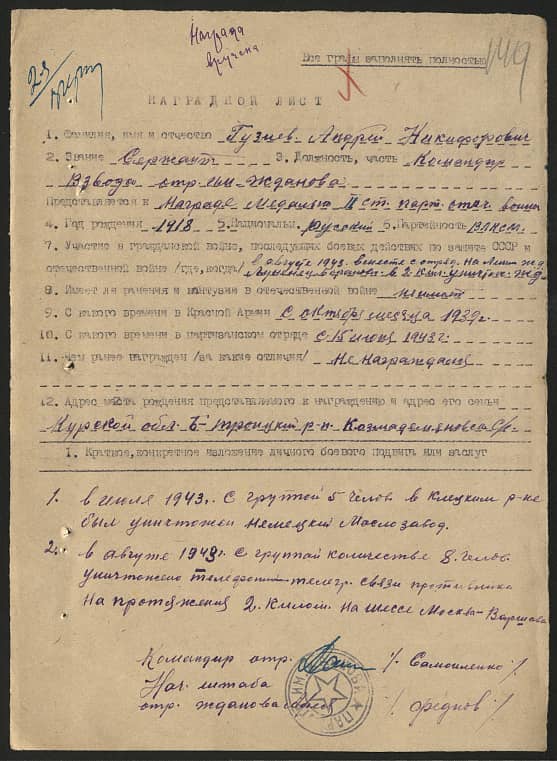 Награда
вручена
Все графы заполнять полностью
149
НАГРАДНОЙ ЛИСТ
1. Фамилия, имя и отчество Гузиев Андрій Никифорович
2. Звание Сержант 3. Должность, часть Командир
Взвода отр. им. Жданова
Представляется к Награде Медалью II ст. парт. отеч. войны
4. Год рождения 1918 5. Национальн. русский 6. Партийность ВЛКСМ
7. Участие в гражданской войне, последующих боевых действиях по защите СССР и
отечественной войне /где, когда/ в августе 1943 вместе с отряд. на Лин. ж.д.
8. Имеет ли ранения и контузии в отечественной войне не имеет
9. С какого времени в Красной Армии с октября месяца 1939г.
10. С какого времени в партизанском отряде с 15 июня 1943г.
11. Чем ранее награжден /за какие отличия/ Не награждался
12. Адрес места рождения представляемого к награждению и адрес его семьи
Курской обл. Б-Троицкий р-н Козмодемяновск с/с
1. Краткое, конкретное изложение личного боевого подвига или заслуг
1. в июля 1943г. с группой 5 челов. в Клецким р-не
был уничтожен немецкий маслозавод.
2. в августе 1943г. с группой количестве 8 челов.
уничтожено телефон-телегр. связи противника
на протяжения 2 килом. на шоссе Москва-Варшава
Командир отр. /Самойленко/
Нач. штаба
отр. Жданова /Феднов/